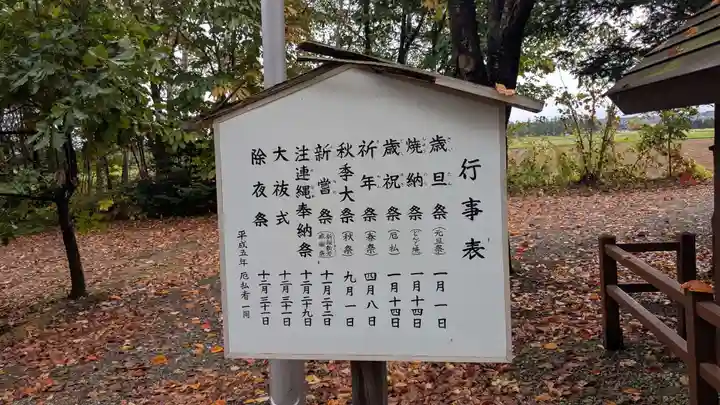 行事表
歳旦祭(元旦祭) 一月一日
焼納祭(どんど焼) 一月十四日
歳祝祭(厄払) 一月十四日
祈年祭(春祭) 四月八日
秋季大祭(秋祭) 九月一日
新嘗祭 十一月二十二日
注連縄奉納祭 十二月二十九日
大祓式 十二月三十一日
除夜祭 十二月三十一日
平成五年 厄払者一同